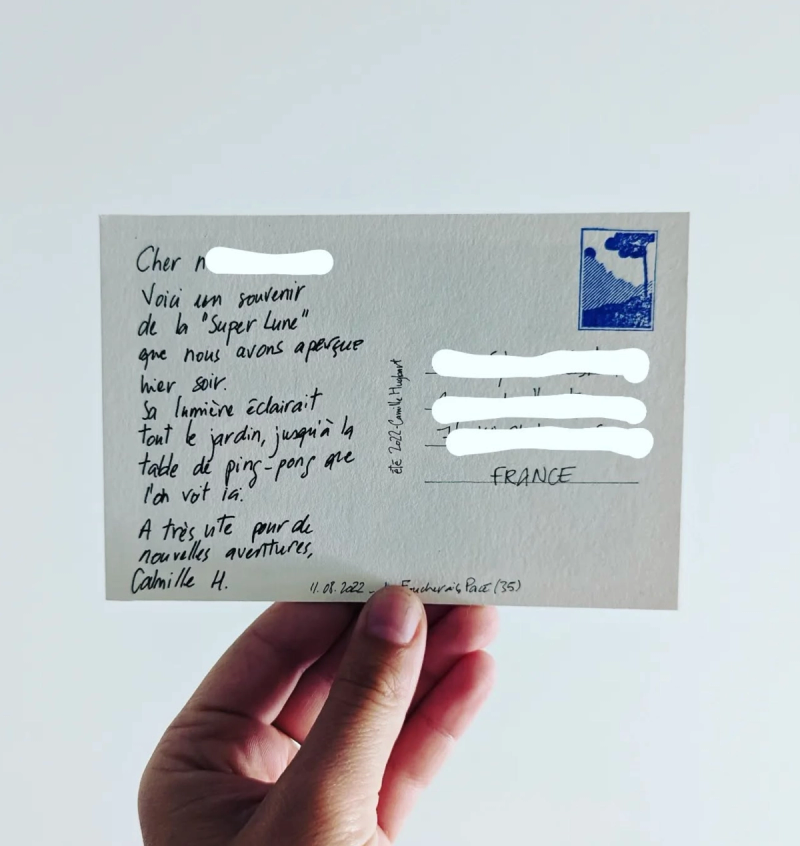 Cher
Voici un souvenir
de la "Super Lune"
que nous avons aperçue
hier soir.
Sa lumière éclairait
tout le jardin, jusqu'à la
table de ping-pong que
l'on voit ici.
A très vite pour de
nouvelles aventures,
Camille H.
11.08.2022
Pacé (35)
été 2022 - Camille
FRANCE